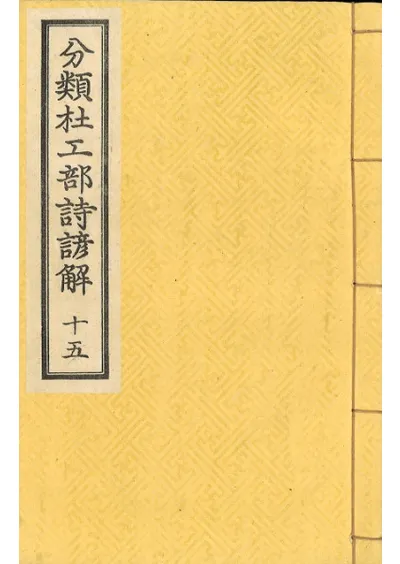 分類杜工部詩諺解 十五